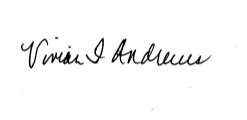 Vivian I Andrews